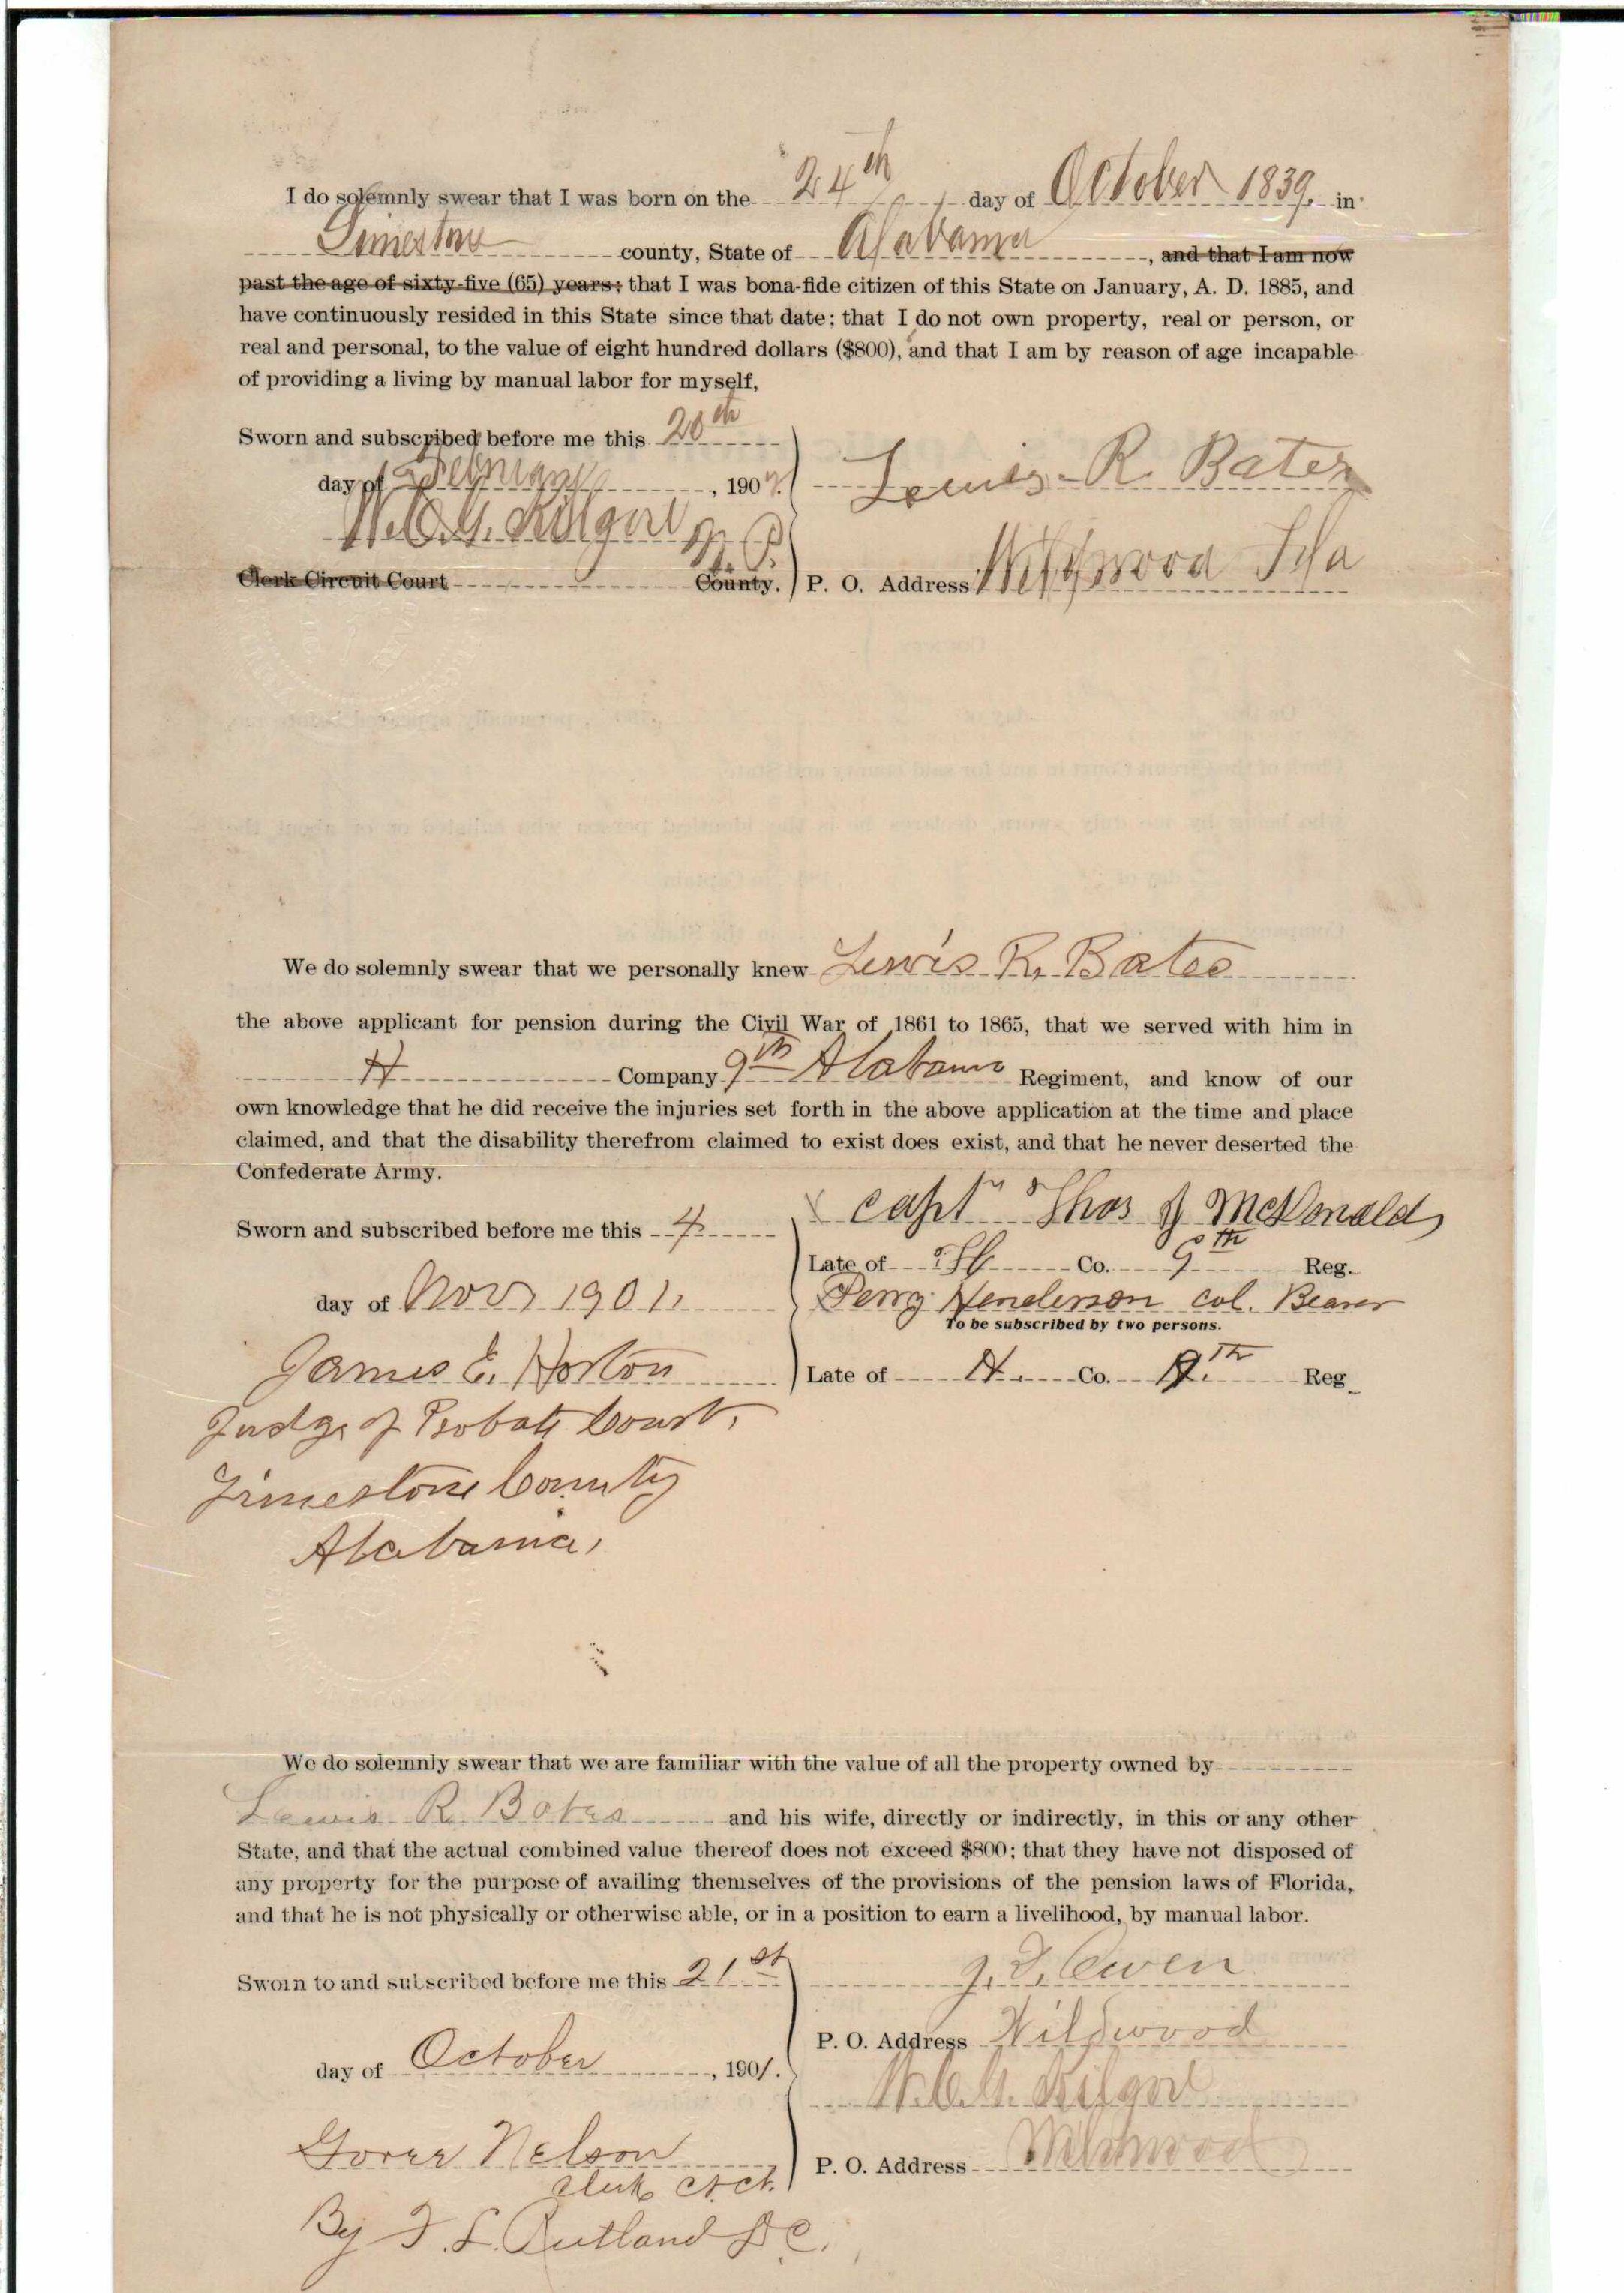 I do solemnly swear that I was born on the 24th day of October 1839, in
Limestone county, State of Alabama, and that I am now
past the age of sixty-five (65) years; that I was bona-fide citizen of this State on January, A. D. 1885, and
have continuously resided in this State since that date; that I do not own property, real or person, or
real and personal, to the value of eight hundred dollars ($800), and that I am by reason of age incapable
of providing a living by manual labor for myself,
Sworn and subscribed before me this 20th
day of February, 190
Lewis R. Bates
W. C. G. Kilgore N. P.
Clerk Circuit Court County.
P. O. Address Wildwood Fla
We do solemnly swear that we personally knew Lewis R. Bates
the above applicant for pension during the Civil War of 1861 to 1865, that we served with him in
H Company 9th Alabama Regiment, and know of our
own knowledge that he did receive the injuries set forth in the above application at the time and place
claimed, and that the disability therefrom claimed to exist does exist, and that he never deserted the
Confederate Army.
Sworn and subscribed before me this 4
Capt Thos J McDonald
Late of H Co. 9th Reg.
day of Nov 1901.
Perry Henderson Col. Bearer
To be subscribed by two persons.
James E. Horton
Late of H. Co. 9.th Reg
Judge of Probate Court,
Limestone County
Alabama,
We do solemnly swear that we are familiar with the value of all the property owned by
Lewis R. Bates and his wife, directly or indirectly, in this or any other
State, and that the actual combined value thereof does not exceed $800; that they have not disposed of
any property for the purpose of availing themselves of the provisions of the pension laws of Florida,
and that he is not physically or otherwise able, or in a position to earn a livelihood, by manual labor.
Sworn to and subscribed before me this 21st
Owen
P. O. Address Wildwood
day of October, 1901.
W. C. G. Kilgore
Nelson
Clerk Ct. Ct.
P. O. Address Wildwood
By F. L. Rutland D C.